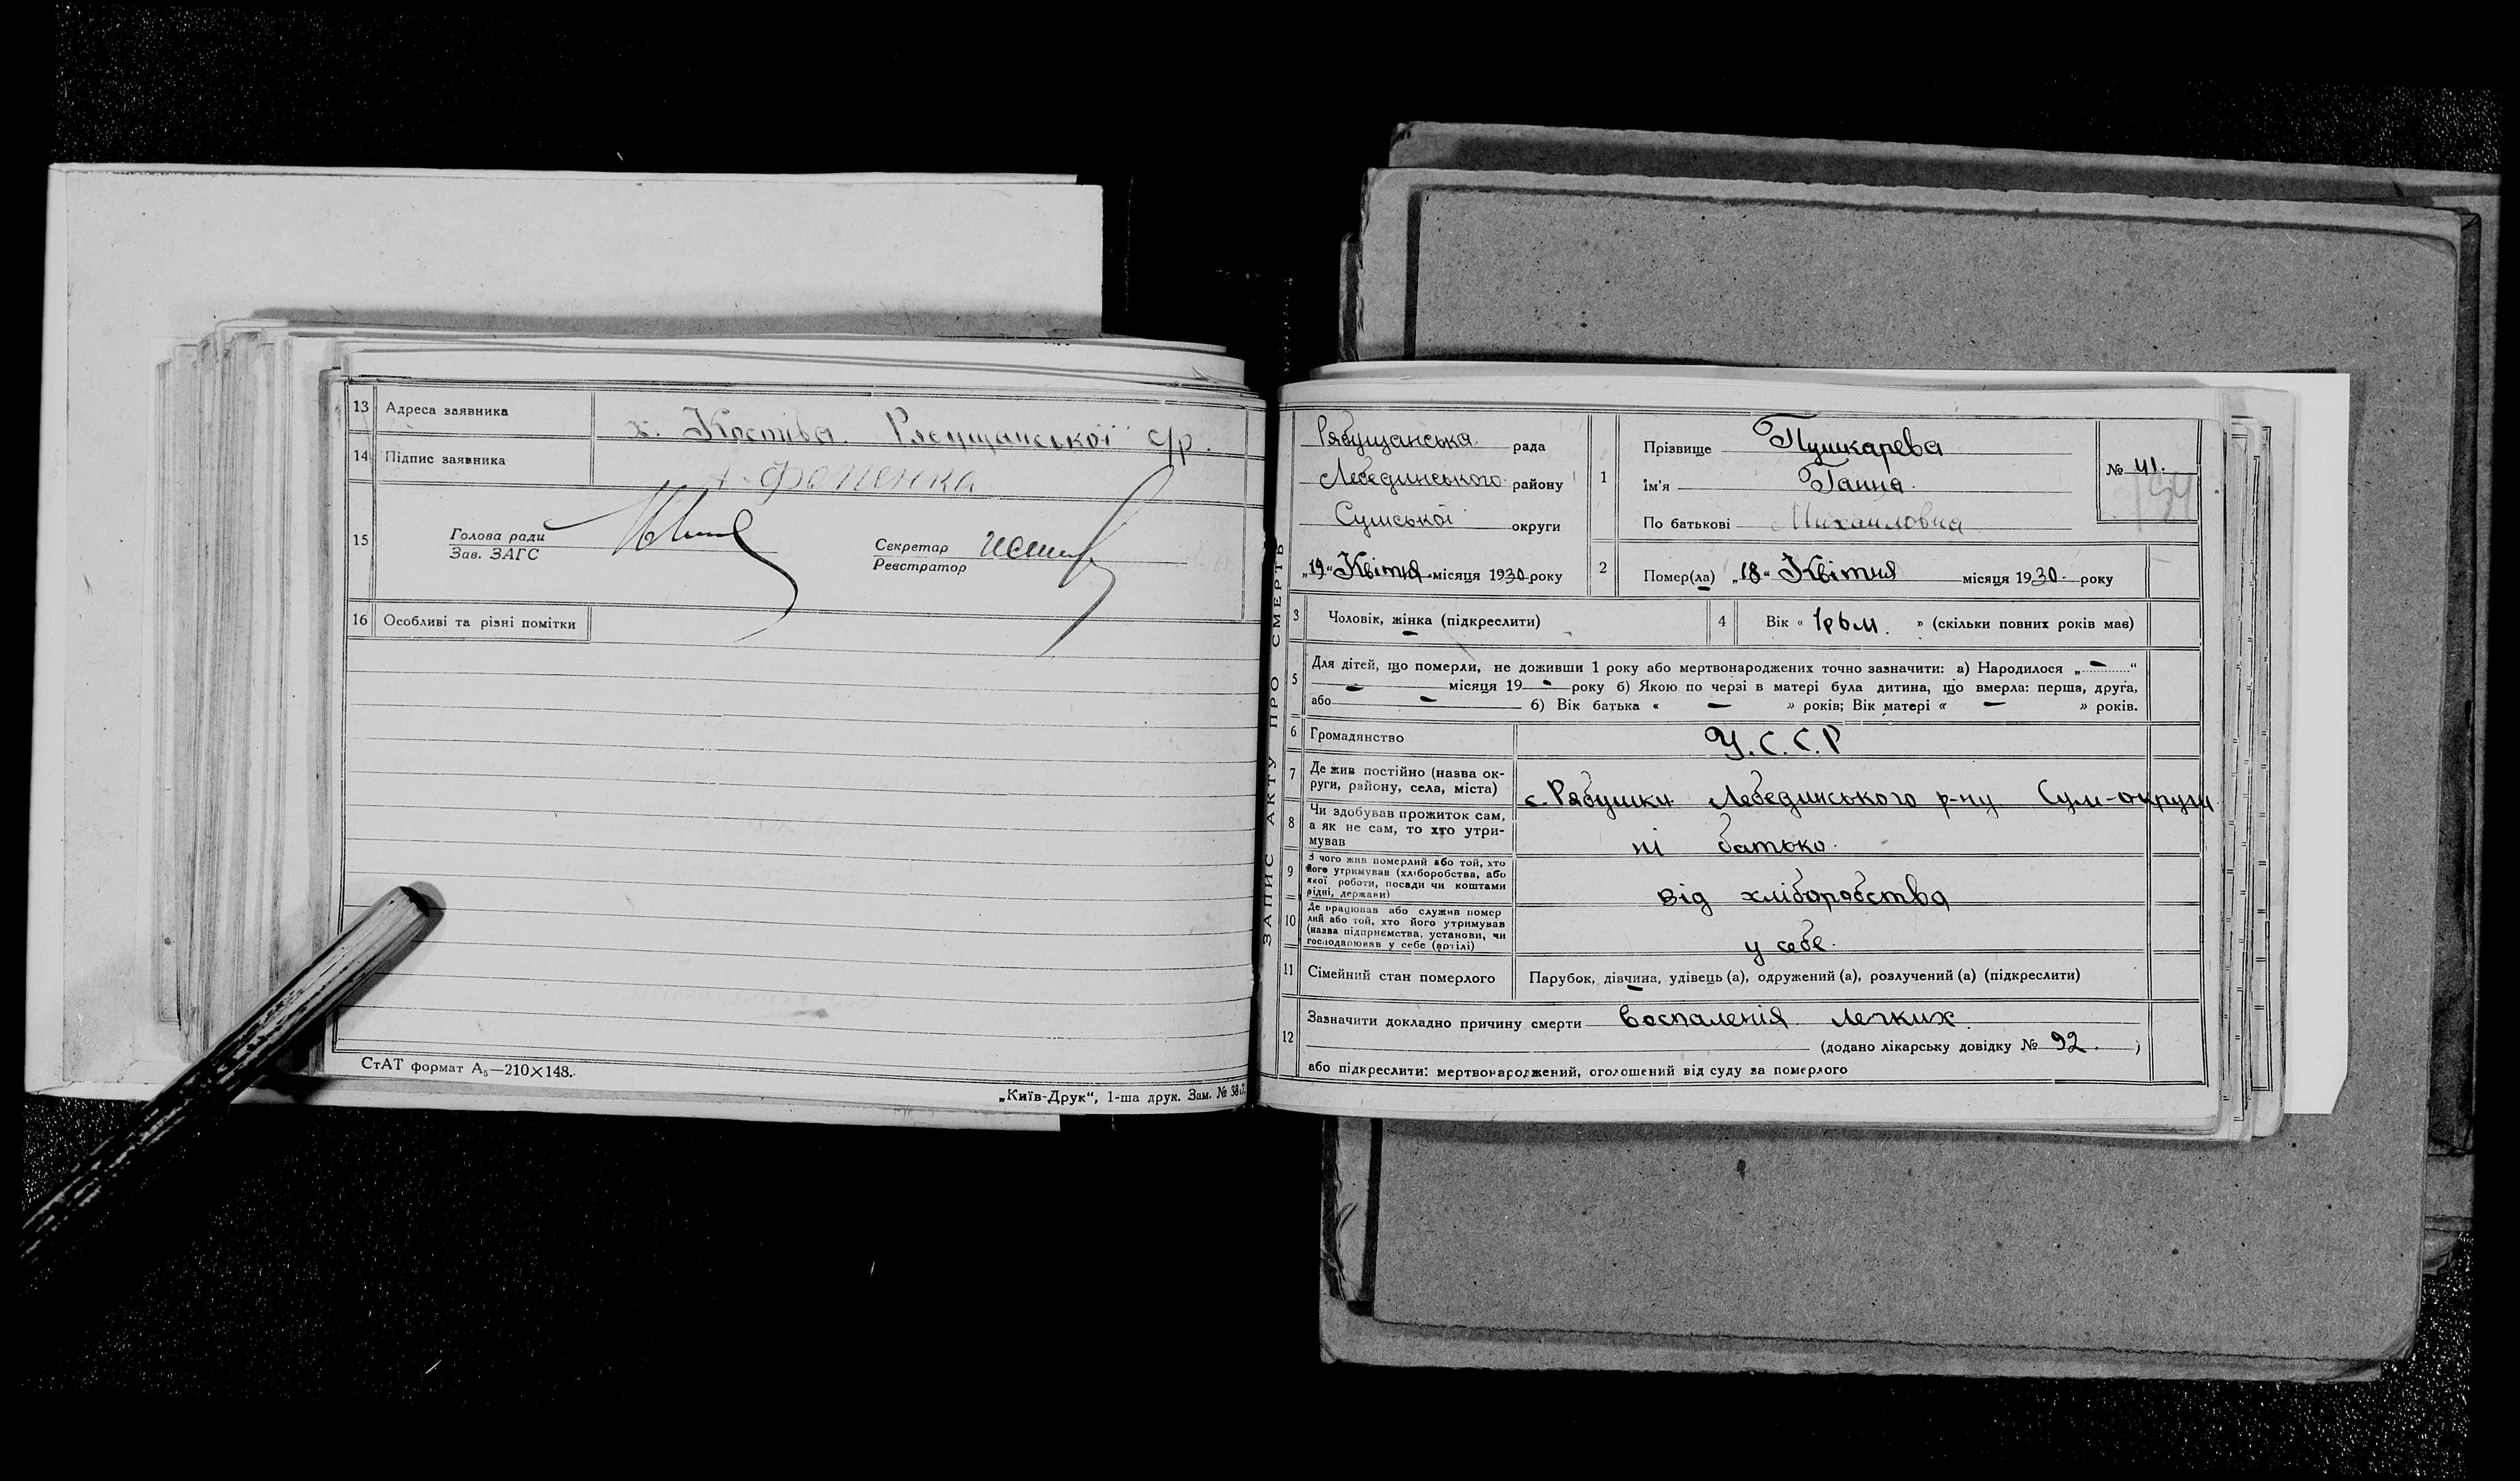 13 Адреса заявника х. Костіва. Рябущанської с/р.
14 Підпис заявника
15 Голова ради
Зав. ЗАГС
Секретар
Реєстратор
16 Особливі та різні помітки
СтАТ формат А₅—210×148.
„Київ-Друк“, 1-ша друк. Зам. №
ЗАПИС АКТУ ПРО СМЕРТЬ
Рябущанська рада
Лебединського району
Сумської округи
„19“ Квітня місяця 1930 року
1 Прізвище Пушкарева
Ім'я Ганна
По батькові Михаиловна
№ 41.
2 Помер(ла) „18“ Квітня місяця 1930 року
3 Чоловік, жінка (підкреслити)
4 Вік « 1р 6 м. » (скільки повних років має)
5 Для дітей, що померли, не доживши 1 року або мертвонароджених точно зазначити: а) Народилося „—“
— місяця 19 — року б) Якою по черзі в матері була дитина, що вмерла: перша, друга,
або — б) Вік батька « — » років; Вік матері « — » років.
6 Громадянство У.С.С.Р
7 Де жив постійно (назва ок-
руги, району, села, міста) с. Рябушки Лебединського р-ну Сум-округи
8 Чи здобував прожиток сам,
а як не сам, то хто утри-
мував ні батько.
9 З чого жив померлий або той, хто
його утримував (хліборобства, або
якої роботи, посади чи коштами
рідні, держави) від хліборобства
10 Де працював або служив помер
лий або той, хто його утримував
(назва підприємства, установи, чи
господарював у себе (артілі) у себе.
11 Сімейний стан померлого Парубок, дівчина, удівець (а), одружений (а), розлучений (а) (підкреслити)
12 Зазначити докладно причину смерти воспаленія легких.
(додано лікарську довідку № 92. )
або підкреслити: мертвонароджений, оголошений від суду за померлого